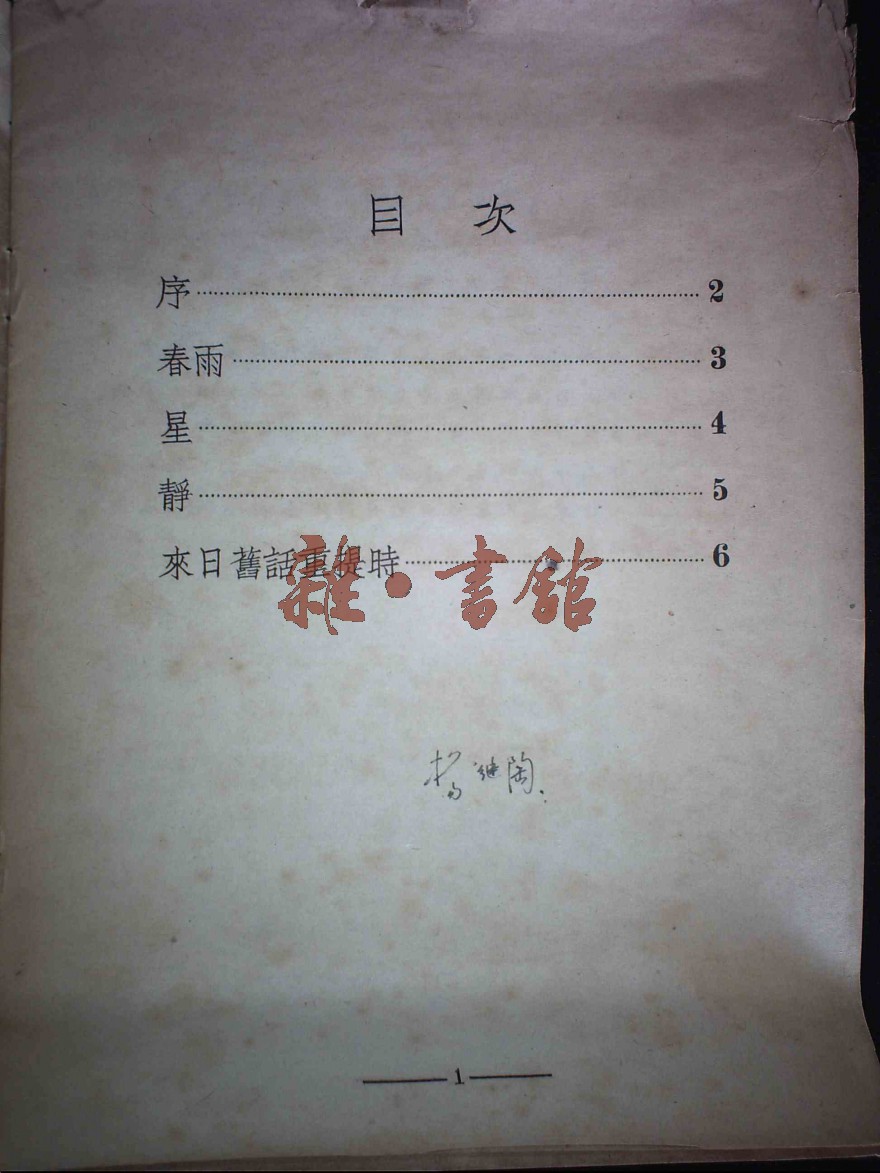 目 次
序……………………2
春雨……………………3
星……………………4
靜……………………5
來日舊話重提時……………………6
雜·書館
楊继陶.
1